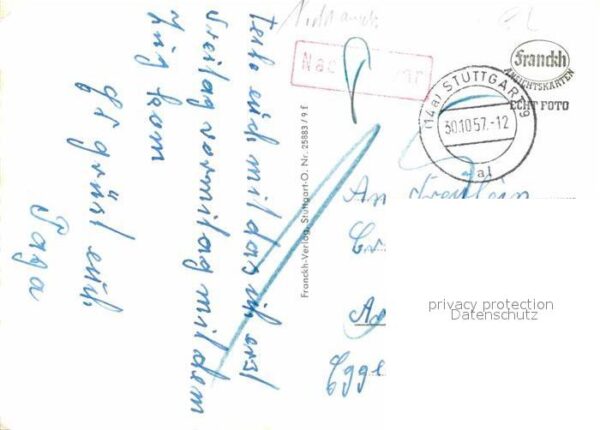 Teile euch mit das ich erst
Freitag vormitag mit dem
Zug kom
Es grüst euch
Franckh-Verlag, Stuttgart-O. Nr. 25883/9 F
Franckh
ANSICHTSKARTEN
ECHT FOTO
(14a) STUTTGART 9
30.10.57.-12
a1
An Fräulein
privacy protection
Datenschutz
Egge